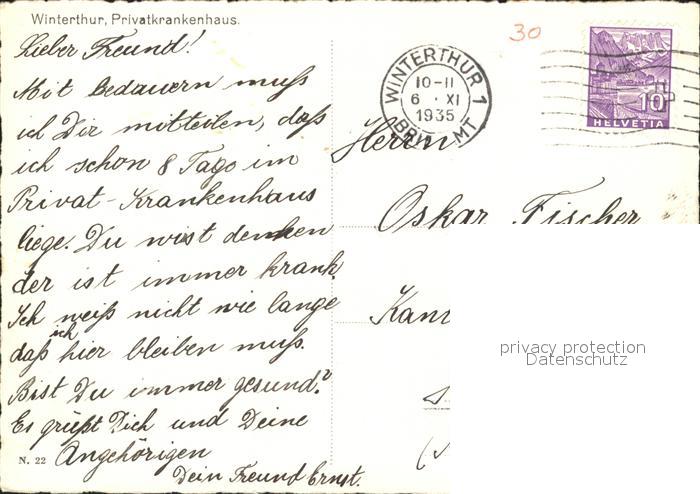 Winterthur, Privatkrankenhaus.
30
Lieber Freund!
Mit bedauern muß
ich Dir mitteilen, daß
ich schon 8 Tage im
Privat-Krankenhaus
liege. Du wirst denken
der ist immer krank.
Ich weiß nicht wie lange
daß ich hier bleiben muß.
Bist Du immer gesund?
Es grüßt Dich und Deine
Angehörigen
Dein Freund Ernst.
N. 22
WINTERTHUR 1
10-11
6 · XI
1935
10
HELVETIA
Herrn
Oskar Fischer
privacy protection
Datenschutz